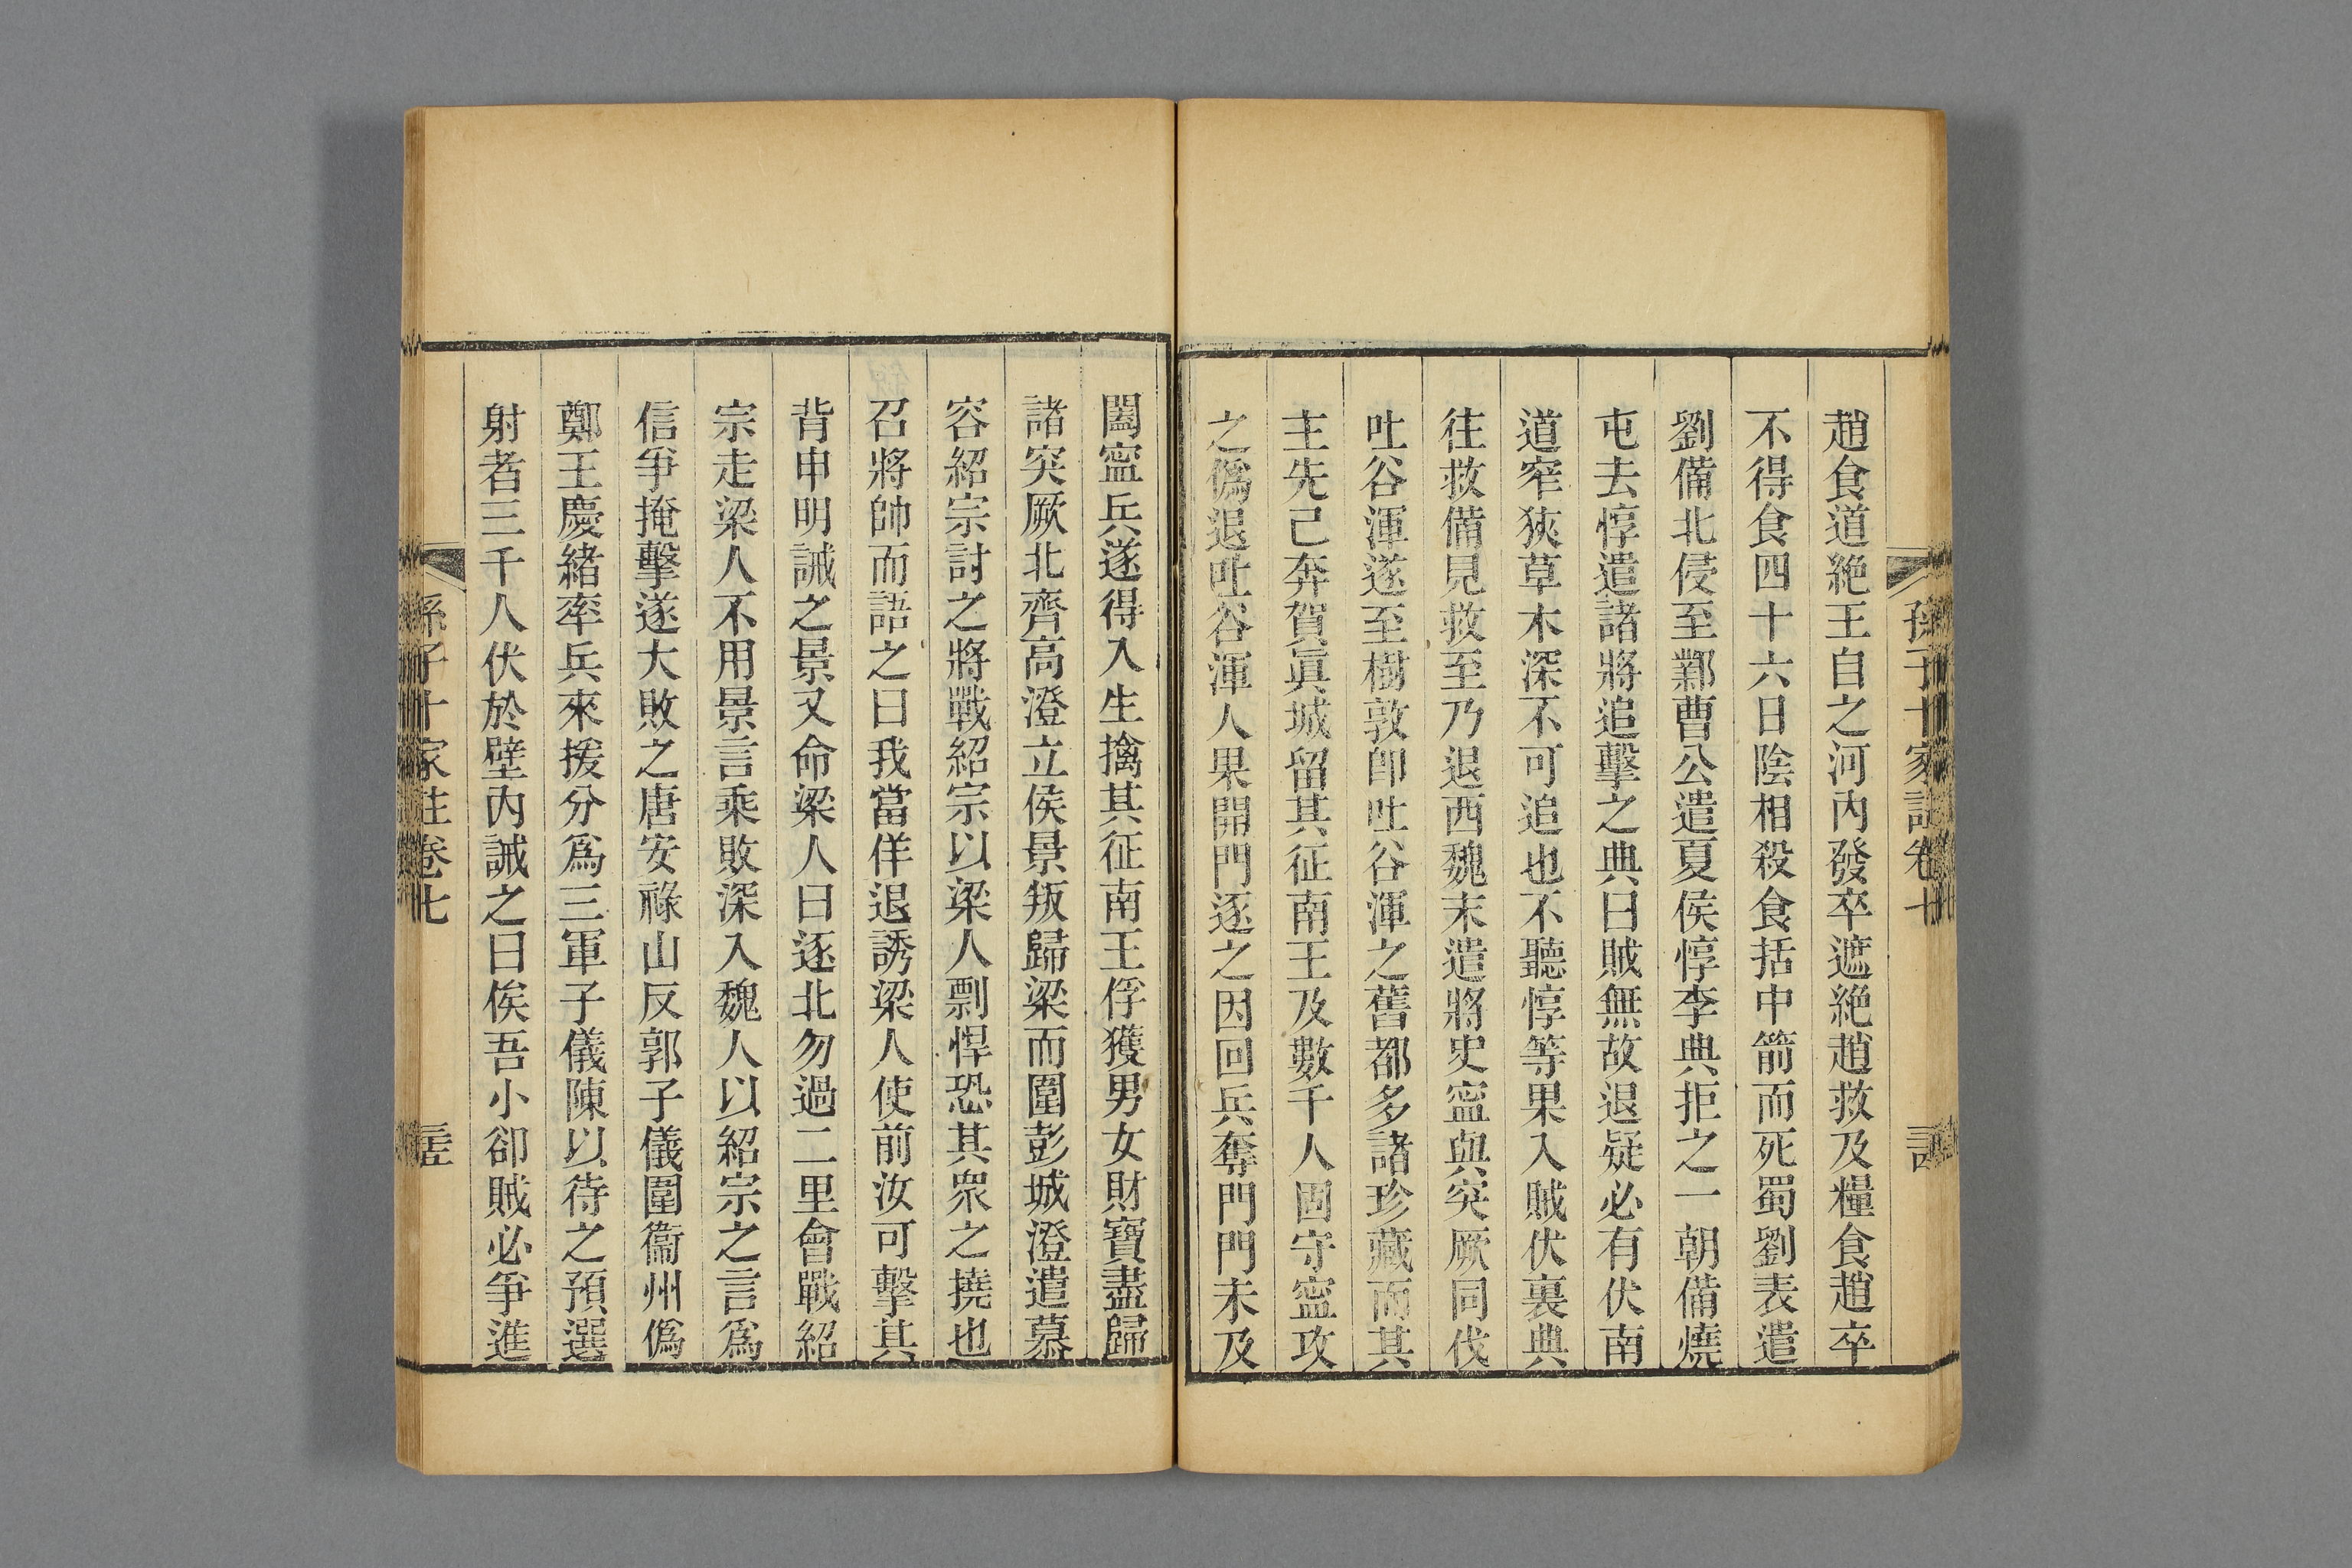 趙食道絕王自之河內發卒遮絕趙救及糧食趙卒
不得食四十六日陰相殺食括中箭而死蜀劉表遣
劉備北侵至鄴曹公遣夏侯惇李典拒之一朝備燒
屯去惇遣諸將追擊之典曰賊無故退疑必有伏南
道窄狹草木深不可追也不聽惇等果入賊伏裏典
往救備見救至乃退西魏末遣將史寍與突厥同伐
吐谷渾遂至樹敦卽吐谷渾之舊都多諸珍藏而其
主先已奔賀眞城留其征南王及數千人固守寍攻
之僞退吐谷渾人果開門逐之因回兵奪門門未及
闔寍兵遂得入生擒其征南王俘獲男女財寶盡歸
諸突厥北齊高澄立侯景叛歸梁而圍彭城澄遣慕
容紹宗討之將戰紹宗以梁人剽悍恐其衆之撓也
召將帥而語之曰我當佯退誘梁人使前汝可擊其
背申明誡之景又命梁人曰逐北勿過二里會戰紹
宗走梁人不用景言乘敗深入魏人以紹宗之言爲
信爭掩擊遂大敗之唐安祿山反郭子儀圍衞州僞
鄭王慶緒率兵來援分爲三軍子儀陳以待之預選
射者三千人伏於壁內誡之曰俟吾小卻賊必爭進
孫子十家註卷七